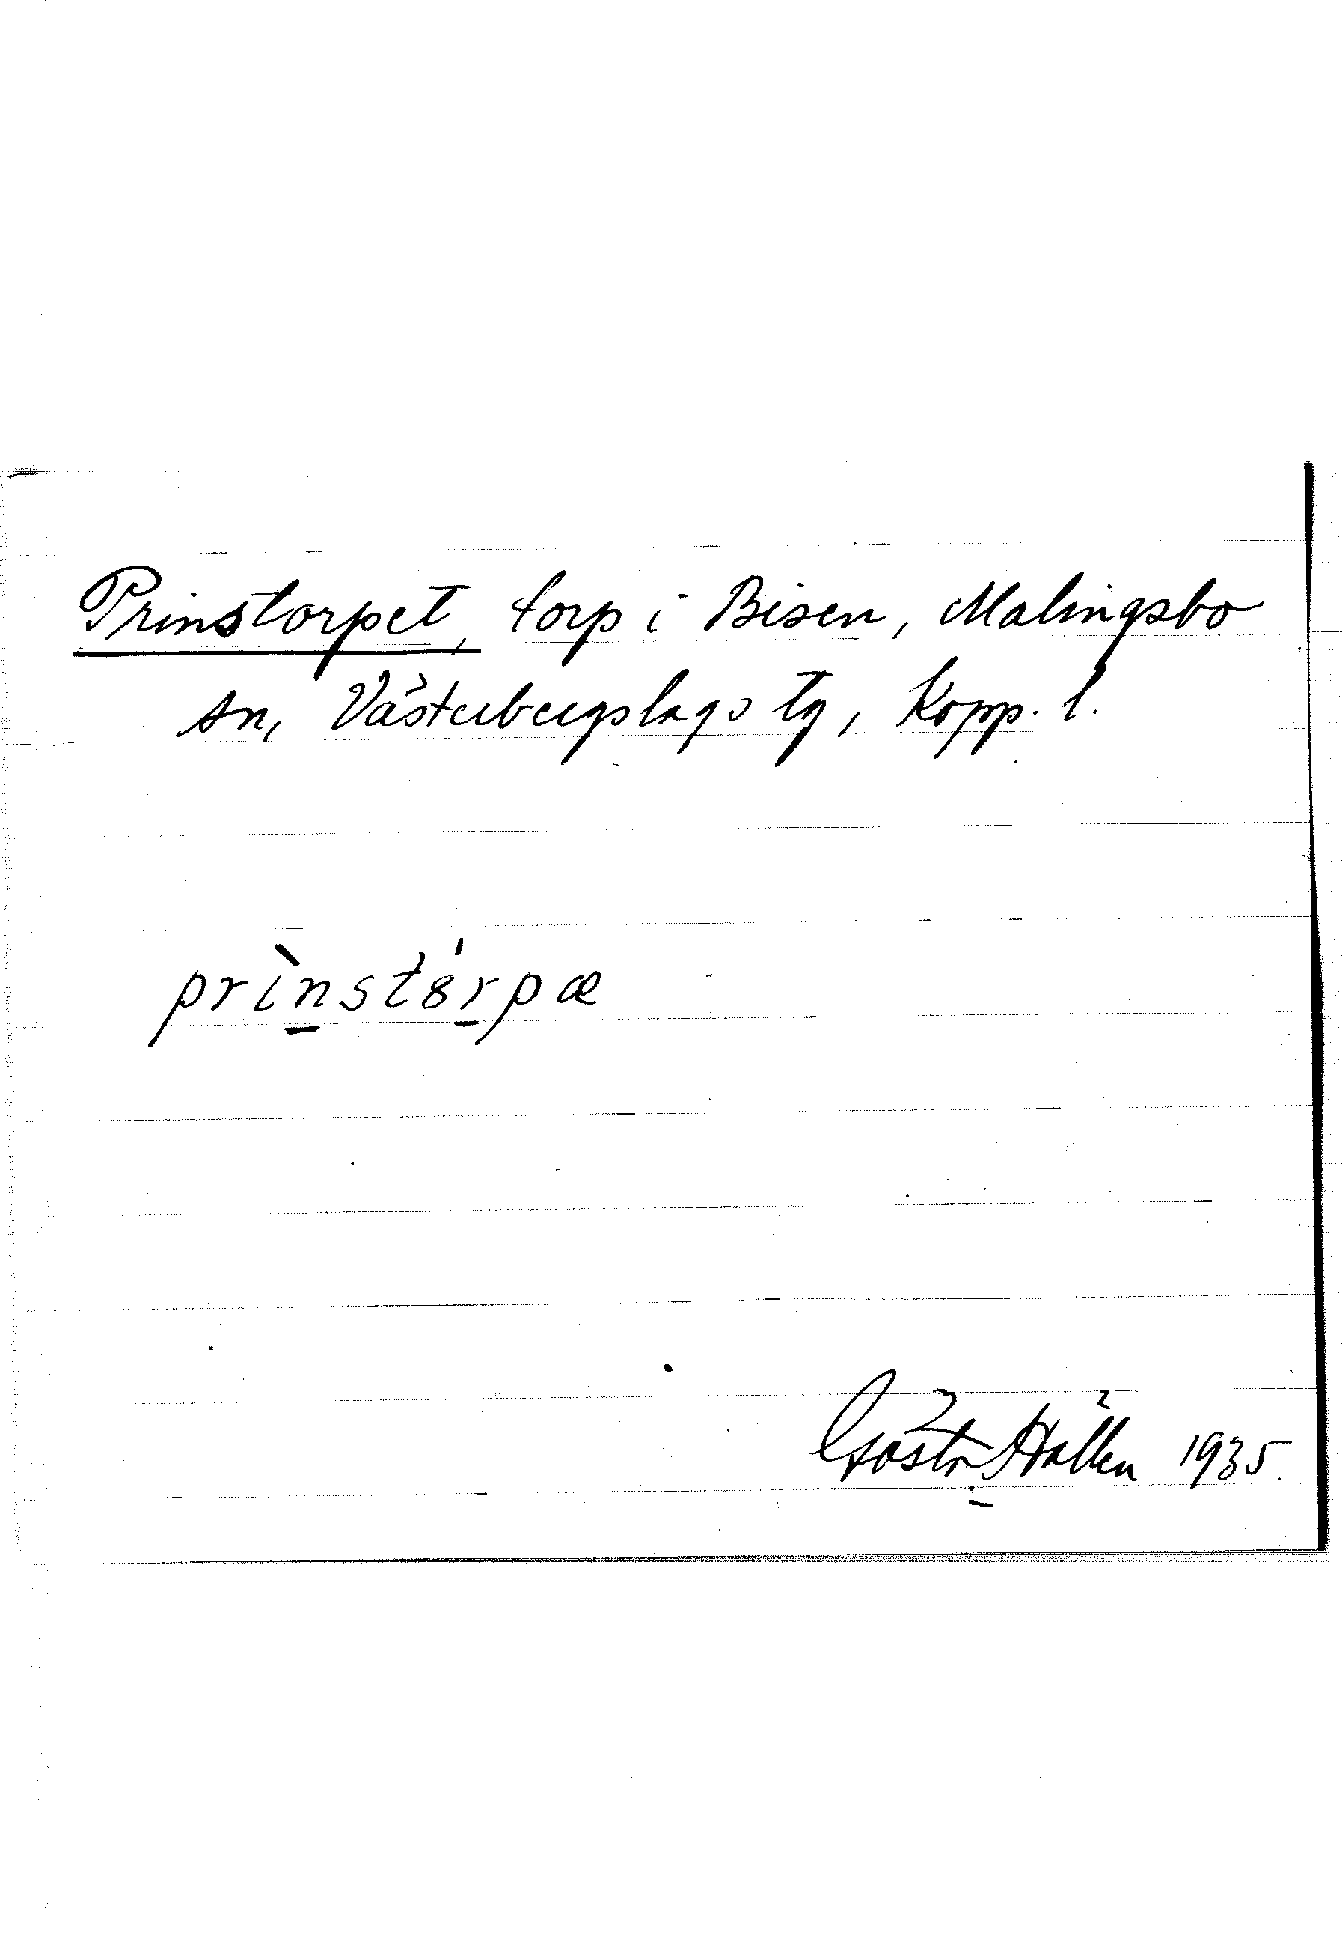 Prinstorpet, torp i Bisen, Malingsbo
sn, Västerbergslags tg, Kopp. l.
prìnstȣ́rpæ
Gösta Hallén 1935.